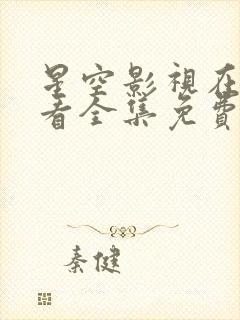 星空影視在
看全集免費
秦健